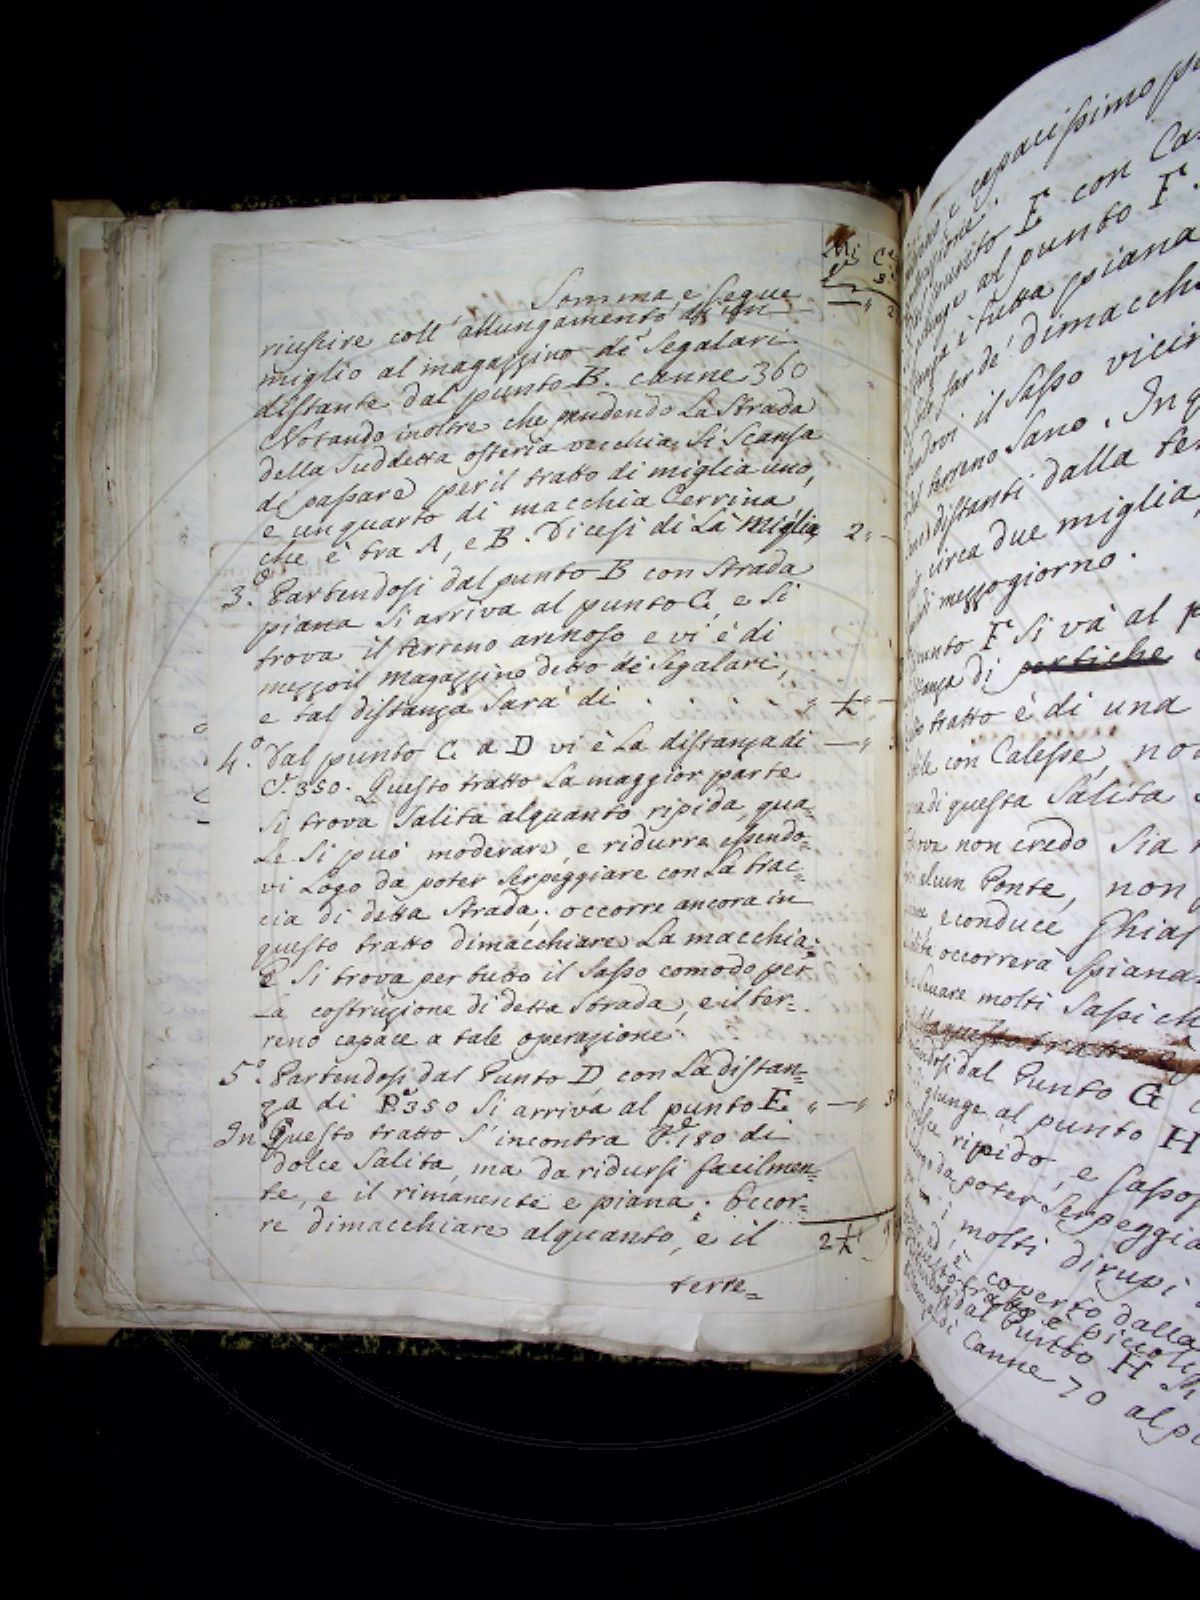 Somma e segue
riuscire coll' allungamento di un
miglio al magazzino de Segalari
distante dal punto B. canne 360
Notando inoltre che prendendo La Strada
della suddetta osteria vecchia, si scansa
di passare per il tratto di miglia uno,
e un quarto di macchia Cerrina
che è tra A, e B. Dicesi di Là miglia 2
3.° Partendosi dal punto B con strada
piana si arriva al punto C, e si
trova il terreno arenoso e vi è di
mezzo il magazzino detto de Segalari,
e tal distanza sarà di . . " ½ "
4.° Dal punto C a D vi è La distanza di
C.e 350. Questo tratto La maggior parte
si trova salita alquanto ripida, qua=
le si può moderare, e ridurre essendo=
vi Logo da poter serpeggiare con La trac=
cia di detta strada; occorre ancora in
questo tratto dimacchiare La macchia.
E si trova per tutto il sasso comodo per
La costruzione di detta strada, e il ter=
reno capace a tale operazione.
5.° Partendosi dal Punto D con La distan=
za di P.e 350 si arriva al punto E " — " 3
In Questo tratto s'incontra P.e 180 di
dolce salita, ma da ridursi facilmen=
te, e il rimanente è piana. Occor=
re dimacchiare alquanto, e il
2 ½
terre=
e capacissimo
punto E con
al punto F.
è tutta piana
far de' dimacch
il sasso vicin
terreno sano. In q
distanti dalla
circa due miglia,
mezzogiorno.
punto F si và al p
di pertiche
tratto è di una
con Calesse, no
di questa salita
non credo sia
alcun Ponte, non
e conduce Ghia
occorrerà spiana
molti sassi ch
questo tratto
dal Punto G
giunge al punto H
ripido, e sasso
da poter serpeggia
molti dirupi
è coperto dalla
questo tratto è piccol
dal Punto H si
di Canne 70 al p